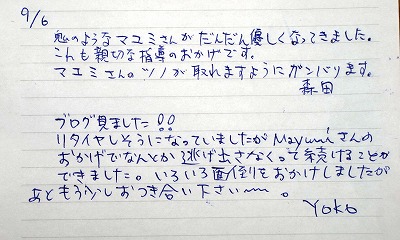 9/6
鬼のようなマユミさんがだんだん優しくなってきました。
これも親切な指導のおかげです。
マユミさんのツノが取れますようにガンバります。
森田
ブログ見ました!!
リタイヤしそうになっていましたがMayumiさんの
おかげでなんとか逃げ出さなくって続けることが
できました。いろいろ面倒をおかけしましたが
あともう少しおつき合い下さい〜。
Yoko